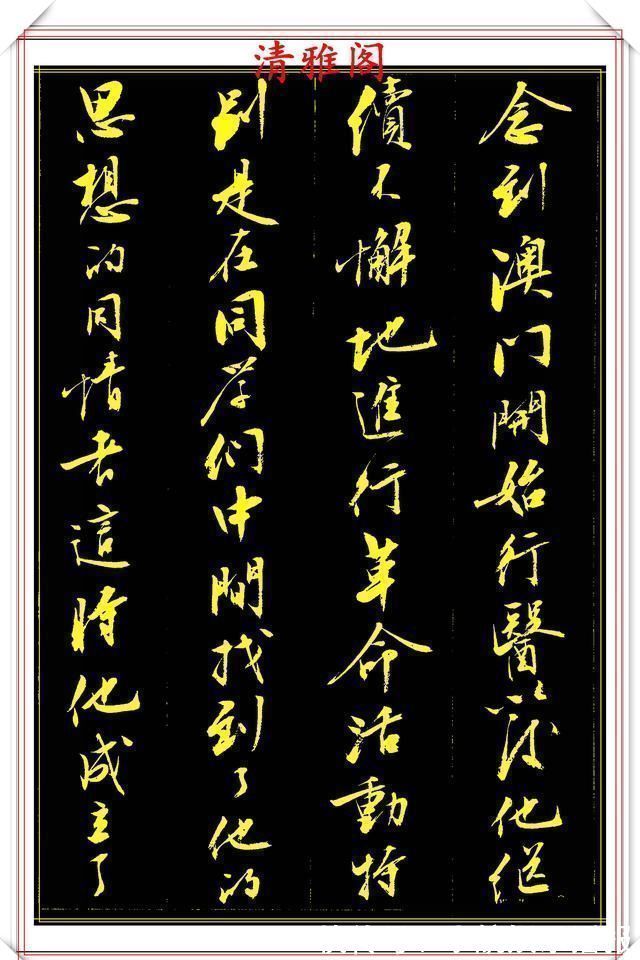 清雅阁
念到澳门開始行醫以後他继
續不懈地進行革命活動特
别是在同学们中間找到了他的
思想的同情者這時他成立了